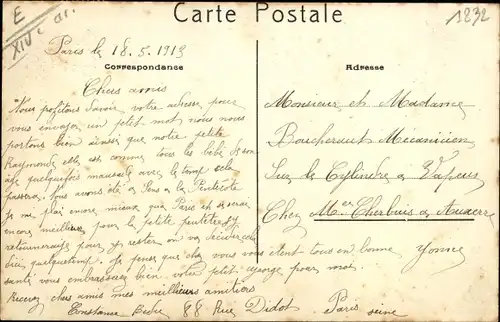 Carte Postale
E
XIVe ar.
1832
Paris le 18.5.1913
Correspondance
Adresse
Chers amis
Nous profitons savoir votre adresse pour
vous envoyer un petit mot nous nous
portons bien ainsi que notre petite
Raymonde elle est comme tous les bébé de son
âge quelquefois mauvaise avec le temp cela
passera. Nous avons été a Sens a la Pentecôte
Je me plai encore mieux que Paris et se serai
encore meilleur pour la petite peutetre
retournerage pour y rester on va décider cela
dici quelquetemp. Je pense que chez vous vous etent tous en bonne
santé vous embrasserez bien votre petit george pour moi.
Recevez chers amis mes meilleurs amitiers
Constance 88 Rue Didot Paris
seine
Monsieur et Madame
Boucheraut Mecanicien
Sur le Cylindre a Vapeur
Chez Me Cherbuis a Auxerre
Yonne